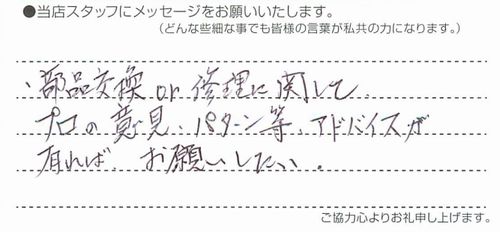 ●当店スタッフにメッセージをお願いいたします。
(どんな些細な事でも皆様の言葉が私共の力になります。)
・部品交換or修理に関して、
プロの意見、パターン等、アドバイスが
有れば、お願いしたい。
ご協力心よりお礼申し上げます。